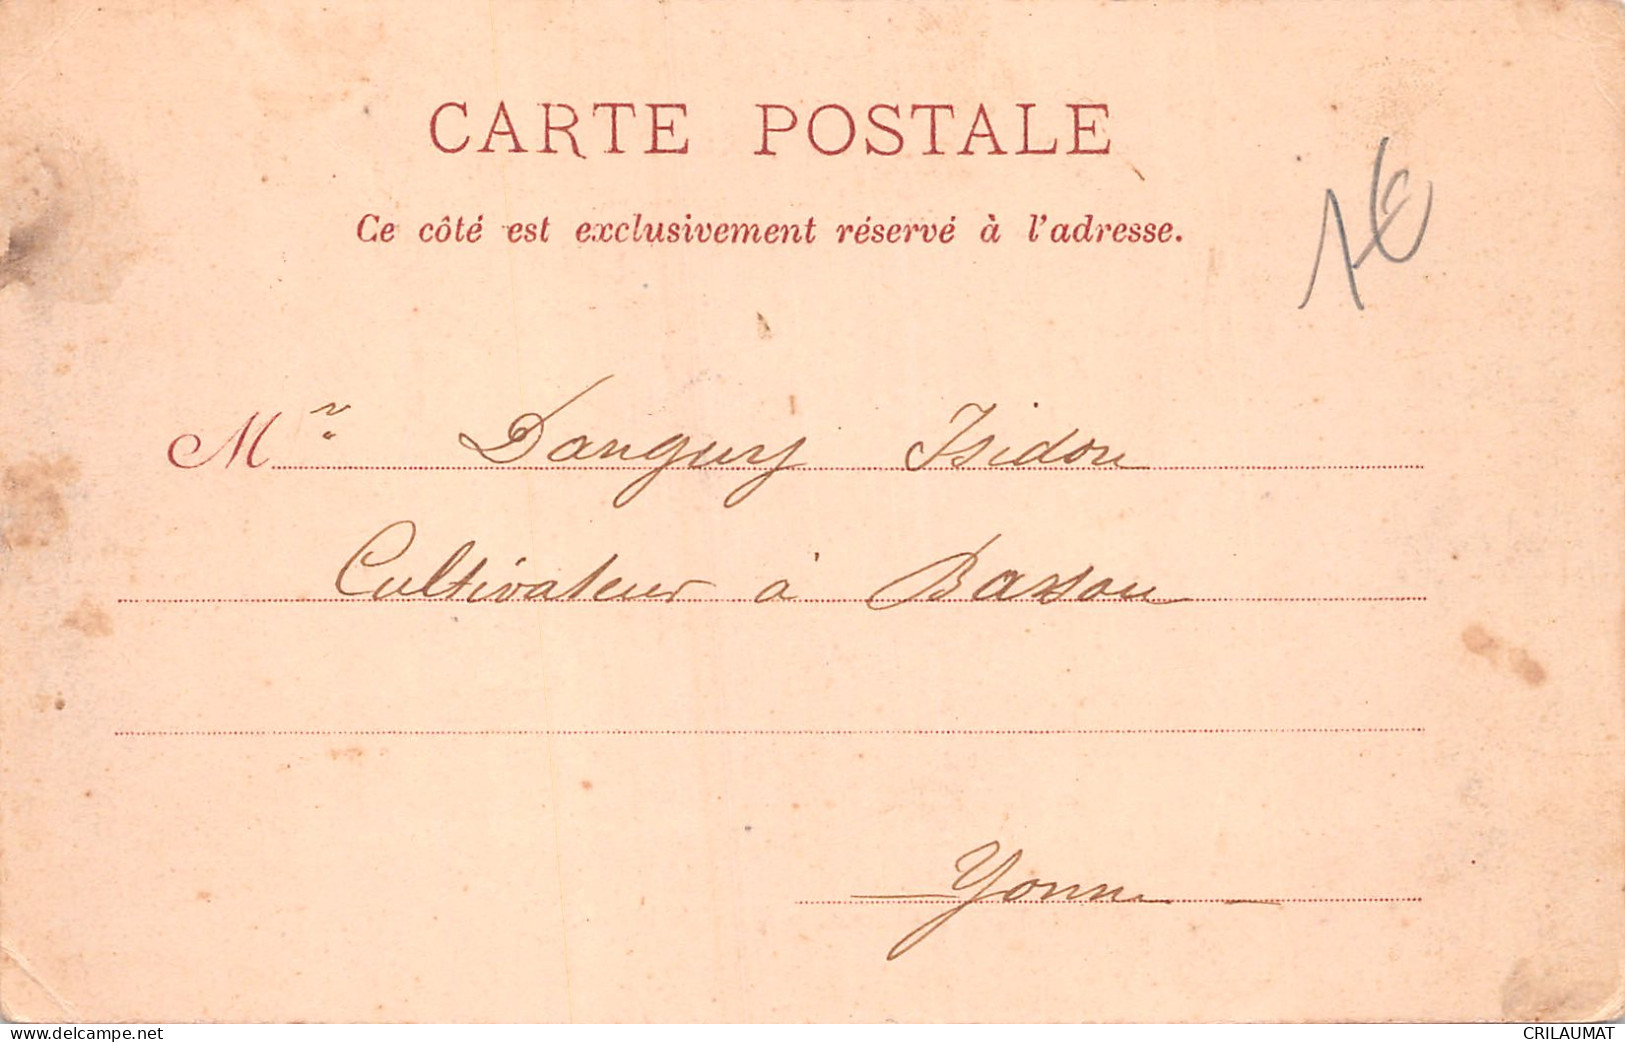 CARTE POSTALE
Ce côté est exclusivement réservé à l'adresse.
1€
Mr Danguy Isidore
Cultivateur à Bassou
Yonne
delcampe.net
CRILAUMAT